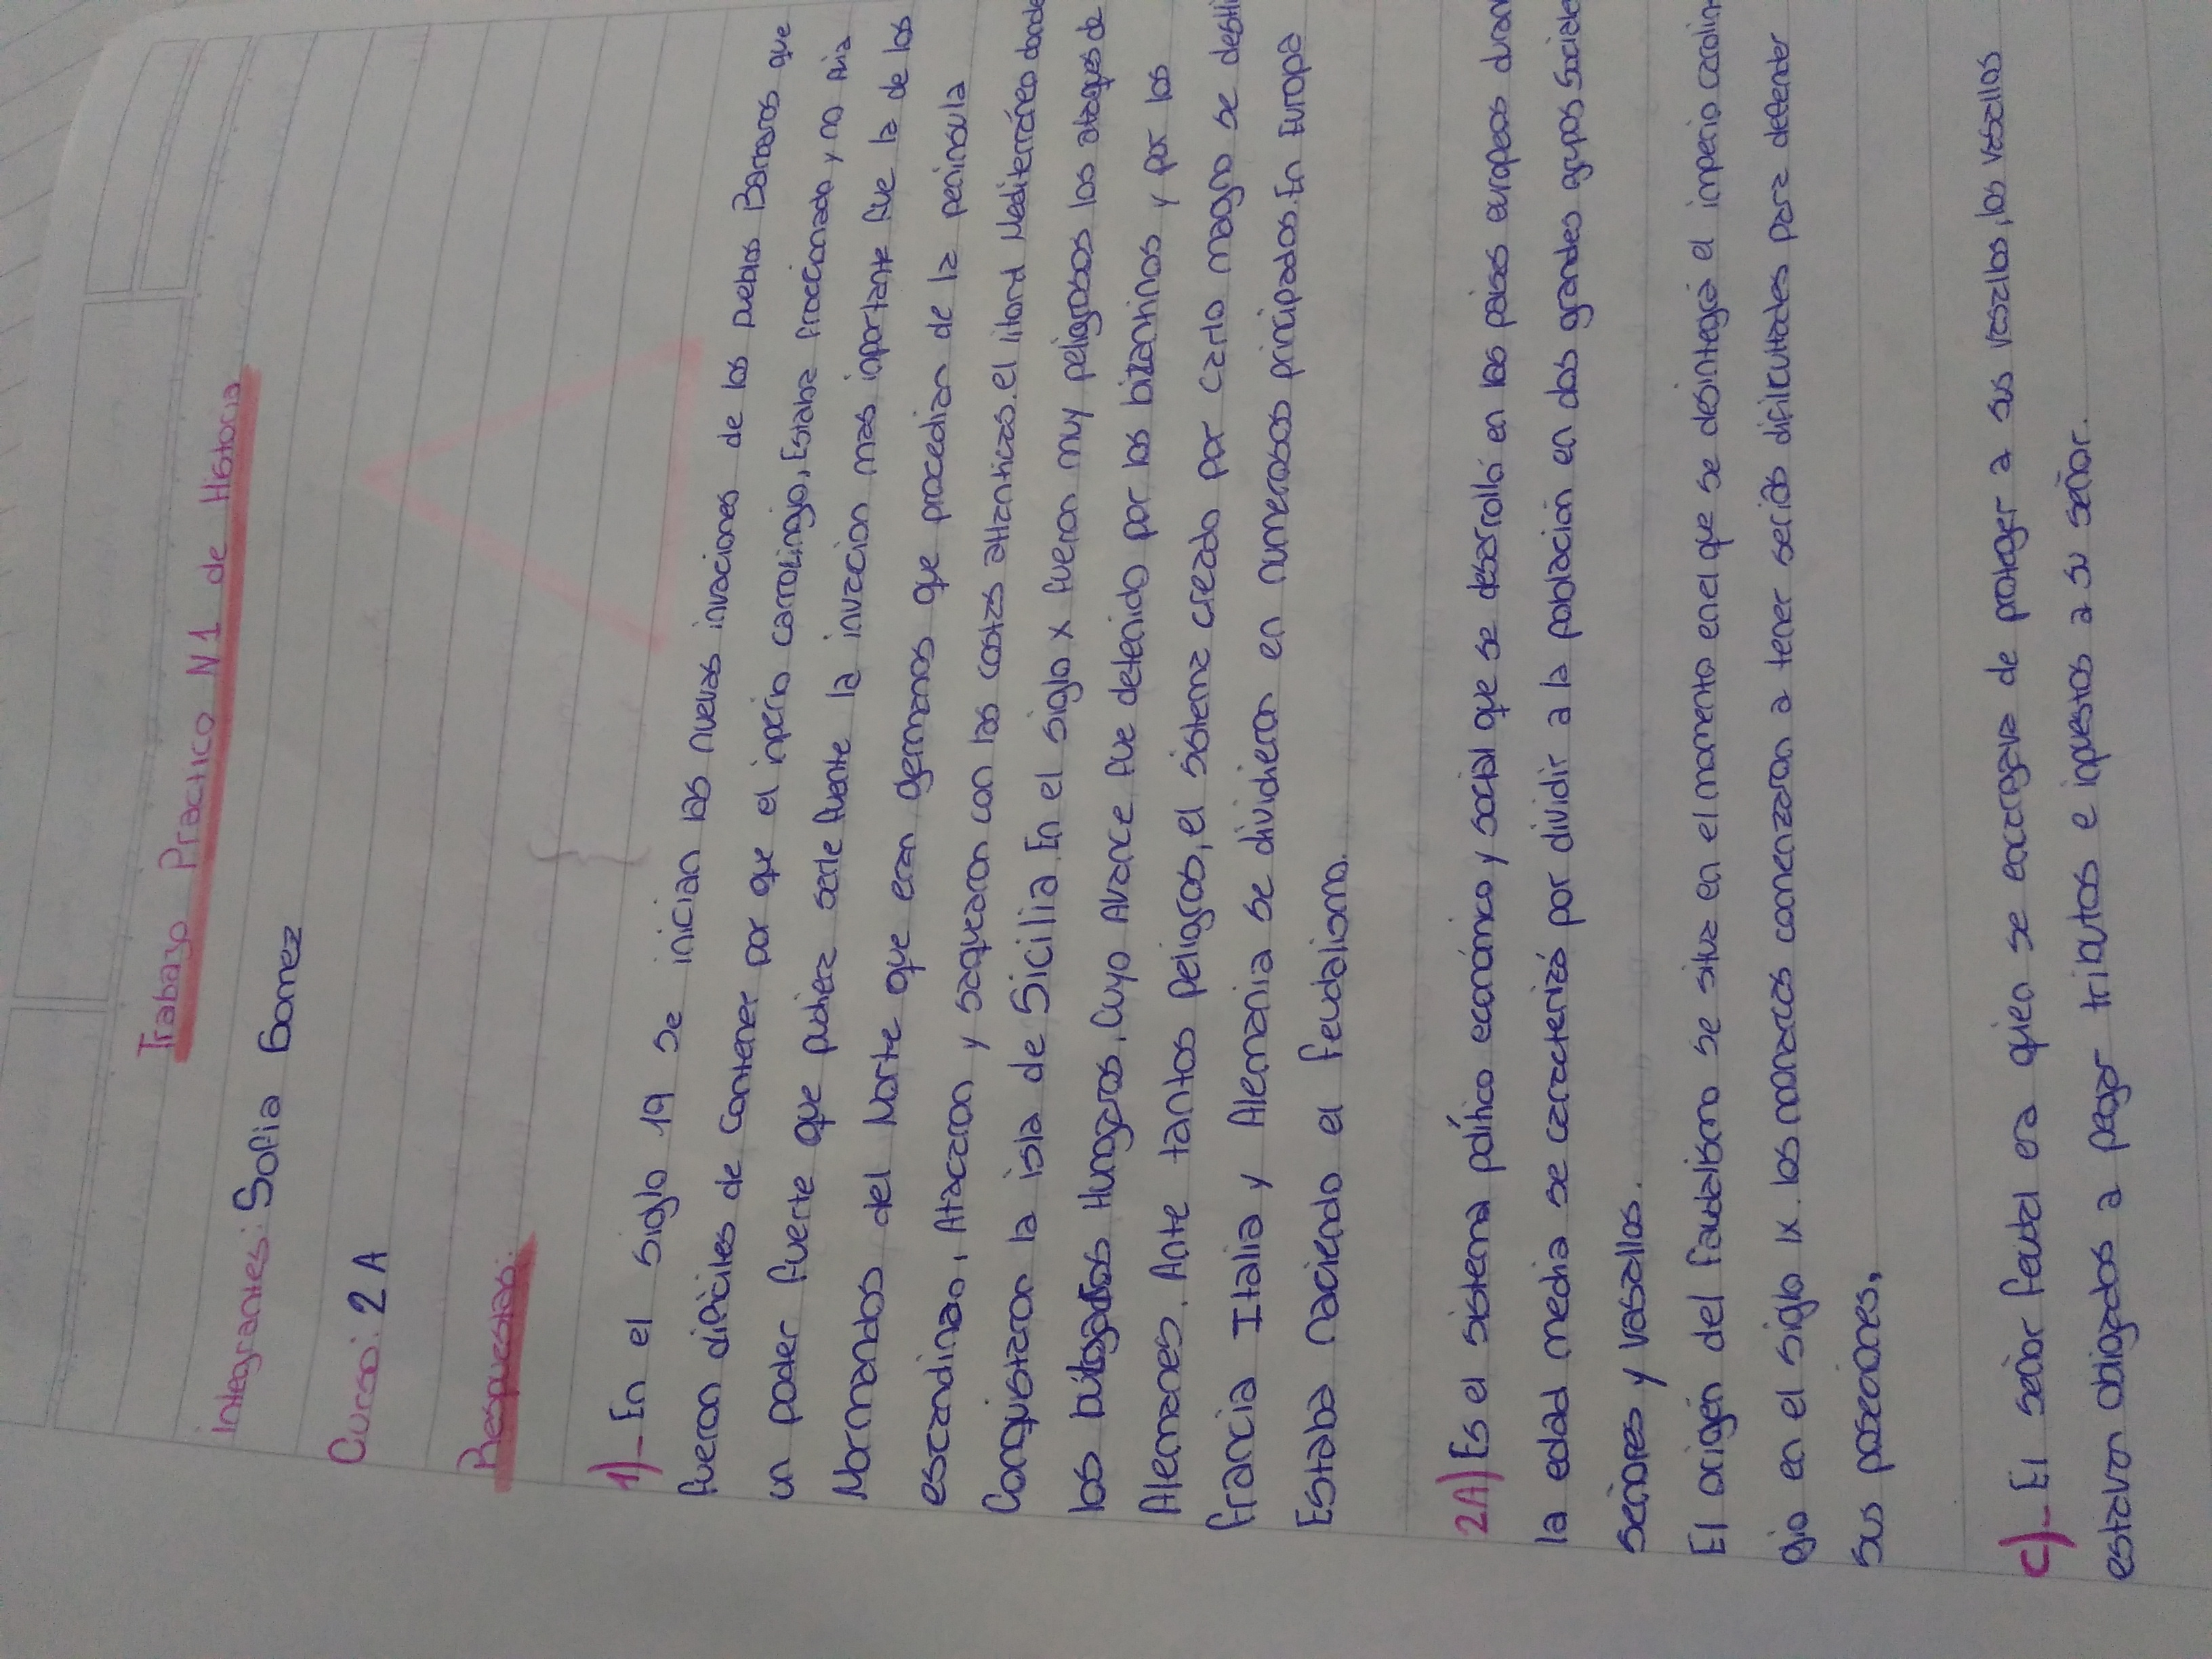 Trabajo Practico N1 de Historia
Integrantes: Sofia Gomez
Curso: 2 A
Respuestas:
1)_ En el siglo 19 se inician las nuevas invaciones de los pueblos Barbaros que
fueron dificiles de contener por que el inperio carrolingio, Estaba fraccionado y no avia
un poder fuerte que pudiera serle fuente la invacion mas inportante fue la de los
Normandos del Norte que eran germanos que procedian de la peninsula
escandinao, Atacaron y saquearon con las costas atlanticas. el litoral Mediterráneo donde
Conquistaron la isla de Sicilia. En el siglo x fueron muy peligrosos los ataques de
los Hungaros, Cuyo Avance fue detenido por los bizantinos y por los
Alemanes. Ante tantos peligros, el sistema creado por carlo magno se
francia Italia y Alemania se dividieron en numerosos principados. En Europa
Estaba naciendo el feudalismo.
2A) Es el sistema político económico y social que se desarrolló en los paises europeos
la edad media se caracterizó por dividir a la poblacion en dos grandes grupos
señores y vasallos.
El origén del faudalismo se situa en el momento en el que se desintegró el imperio
gio en el siglo IX. los monarcas comenzaron a tener seriás dificultades para defender
sus poseciones,
c)_ El señor feudal era quien se encargava de proteger a sus vasallos, los vasallos
estavan obligados a pagar tributos e inpuestos a su señor.